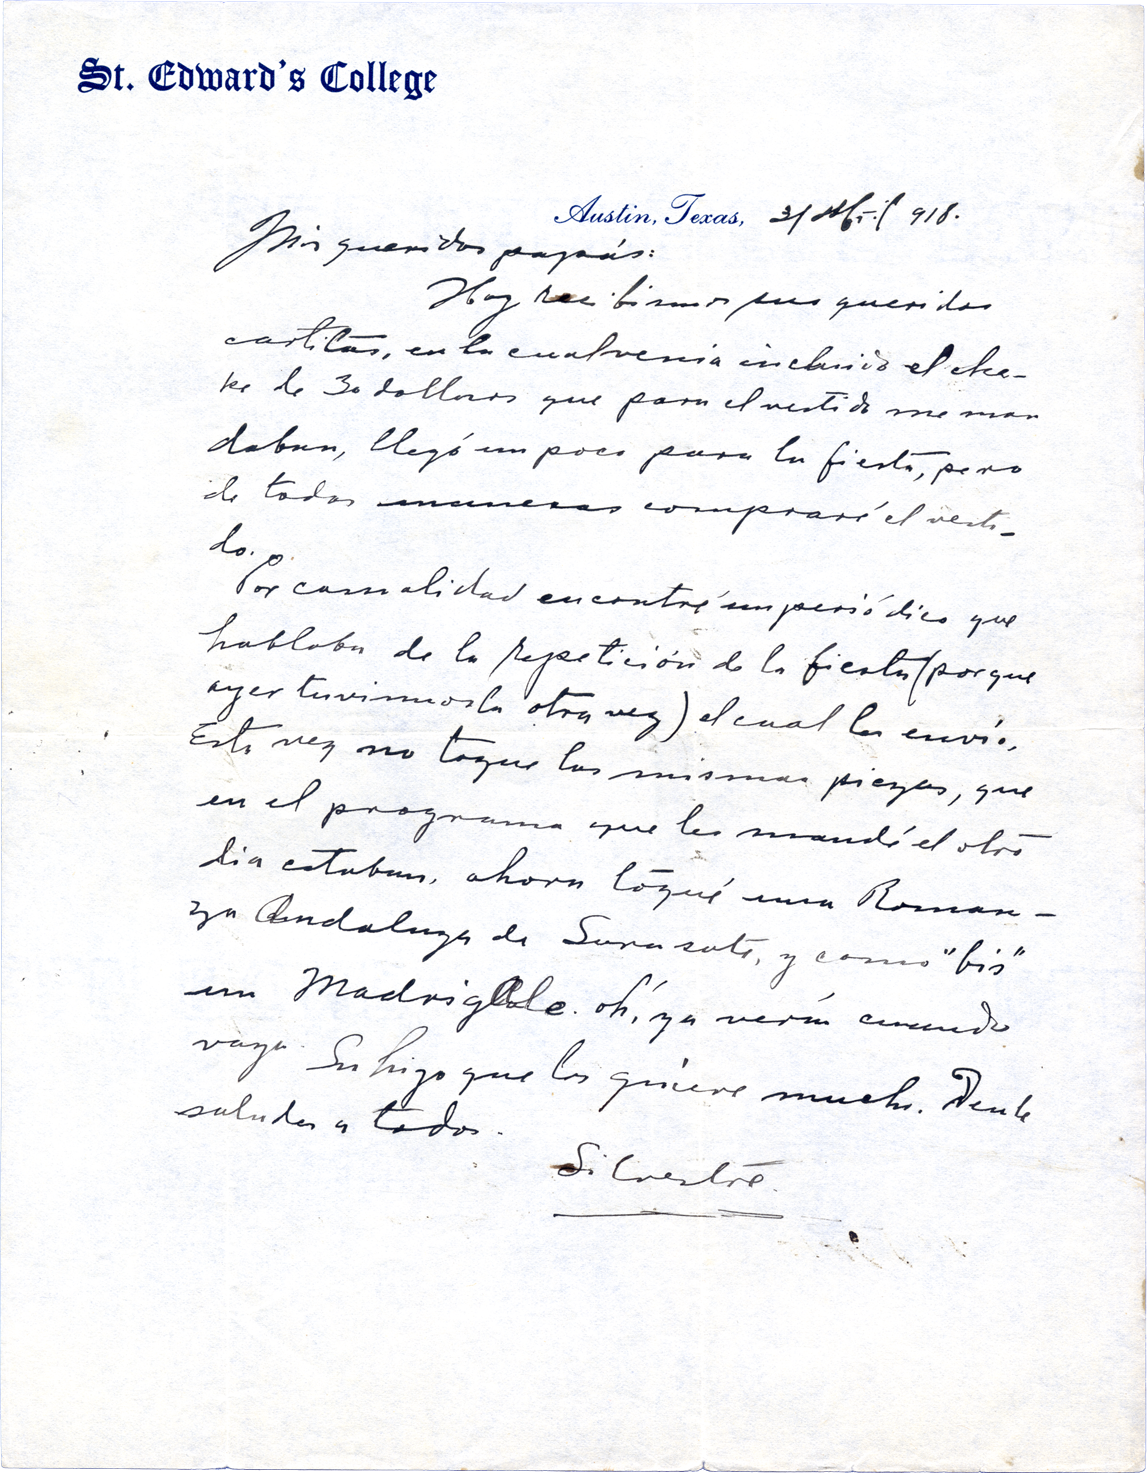 St. Edward's College
Austin, Texas, 3/ Abril 918.
Mis queridos papás:
Hoy recibimos sus queridas
cartitas, en la cual venia incluido el che-
ke de 30 dollars que para el vestido me man
daban, llegó un poco para la fiesta, pero
de todas maneras compraré el vesti-
do.
Por casualidad encontré un periódico que
hablaba de la repetición de la fiesta (porque
ayer tuvimosla otra vez) el cual les envío.
Esta vez no toque las mismas piezas, que
en el programa que les mandé el otro
dia estaban, ahora toqué una Roman-
za Andaluza de Sarasate, y como "bis"
un Madrigale. oh, ya verán cuando
vaya. Su hijo que los quiere mucho. Denle
saludes a todos.
Silvestre.